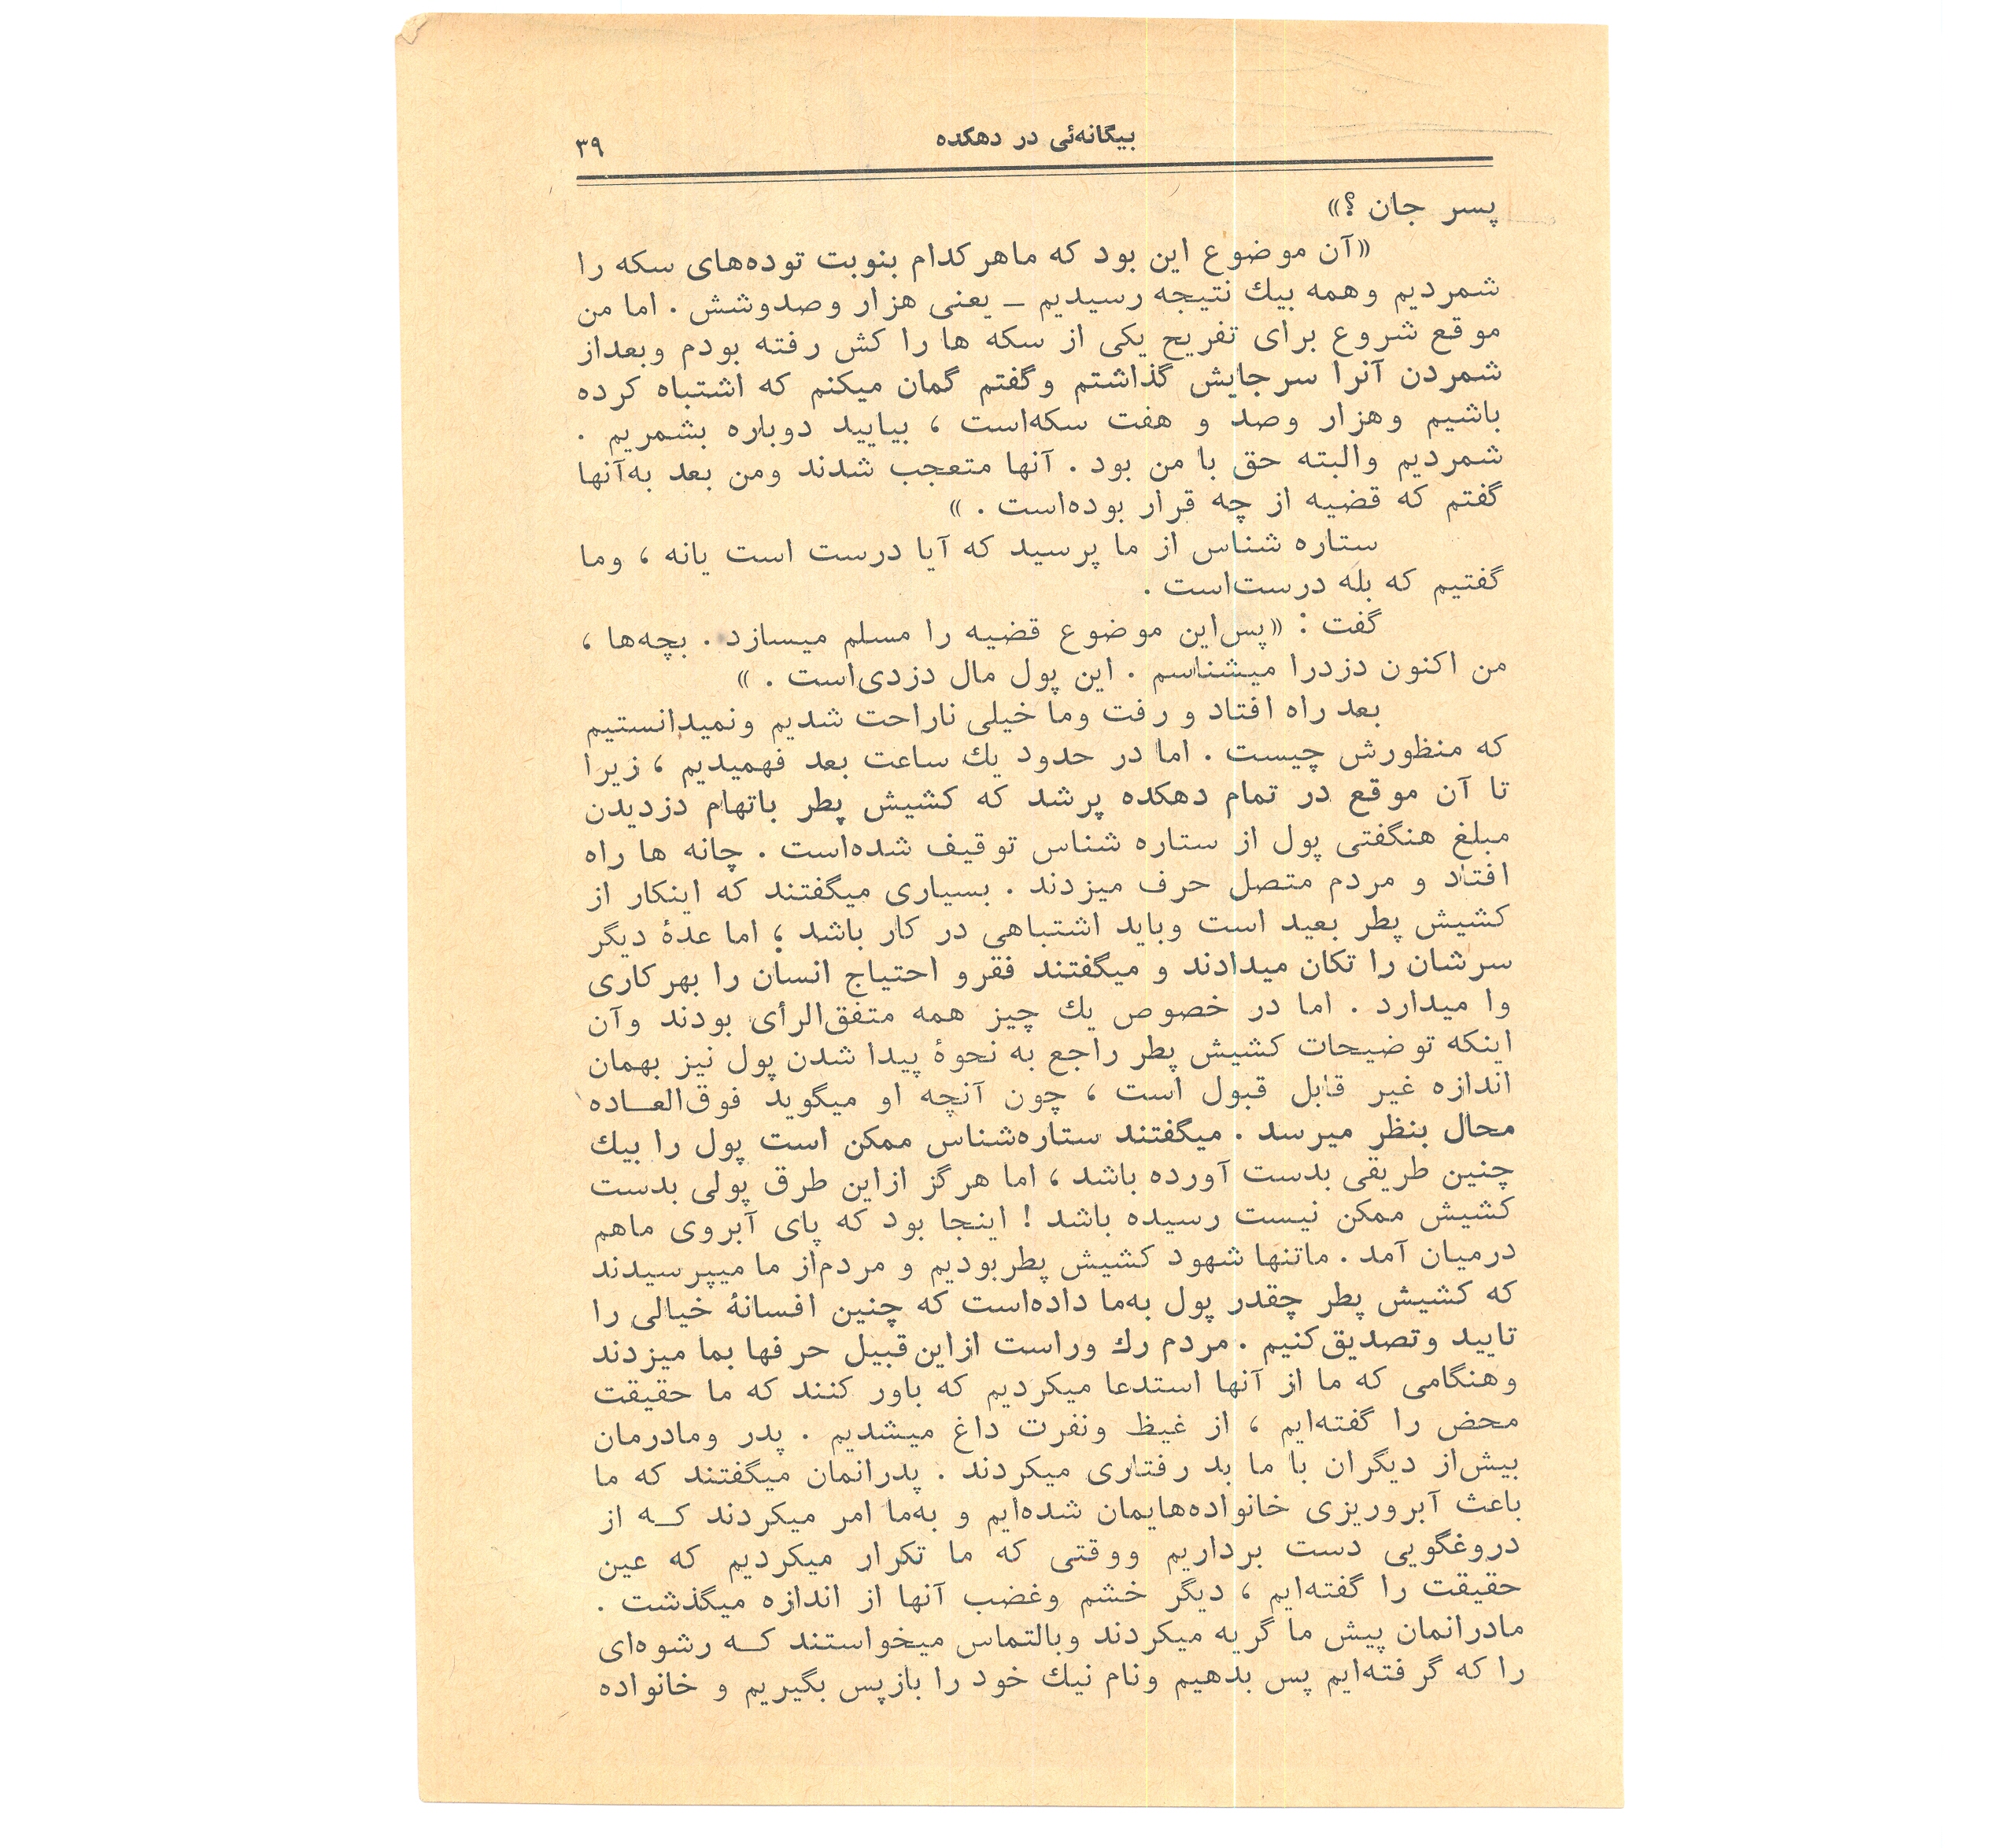 بیگانه‌ئی در دهکده
۳۹
پسر جان ؟»
«آن موضوع این بود که ماهر کدام بنوبت توده‌های سکه را
شمردیم وهمه بیك نتیجه رسیدیم – یعنی هزار وصدوشش . اما من
موقع شروع برای تفریح یکی از سکه ها را کش رفته بودم وبعداز
شمردن آنرا سرجایش گذاشتم وگفتم گمان میکنم که اشتباه کرده
باشیم وهزار وصد و هفت سکه‌است ، بیایید دوباره بشمریم .
شمردیم والبته حق با من بود . آنها متعجب شدند ومن بعد به‌آنها
گفتم که قضیه از چه قرار بوده‌است . »
ستاره شناس از ما پرسید که آیا درست است یانه ، وما
گفتیم که بله درست‌است .
گفت : «پس‌این موضوع قضیه را مسلم میسازد . بچه‌ها ،
من اکنون دزدرا میشناسم . این پول مال دزدی‌است . »
بعد راه افتاد و رفت وما خیلی ناراحت شدیم ونمیدانستیم
که منظورش چیست . اما در حدود یك ساعت بعد فهمیدیم ، زیرا
تا آن موقع در تمام دهکده پرشد که کشیش پطر باتهام دزدیدن
مبلغ هنگفتی پول از ستاره شناس توقیف شده‌است . چانه ها راه
افتاد و مردم متصل حرف میزدند . بسیاری میگفتند که اینکار از
کشیش پطر بعید است وباید اشتباهی در کار باشد ؛ اما عدهٔ دیگر
سرشان را تکان میدادند و میگفتند فقرو احتیاج انسان را بهر کاری
وا میدارد . اما در خصوص یك چیز همه متفق‌الرأی بودند وآن
اینکه توضیحات کشیش پطر راجع به نحوهٔ پیدا شدن پول نیز بهمان
اندازه غیر قابل قبول است ، چون آنچه او میگوید فوق‌العـاده
محال بنظر میرسد . میگفتند ستاره‌شناس ممکن است پول را بیك
چنین طریقی بدست آورده باشد ، اما هرگز ازاین طرق پولی بدست
کشیش ممکن نیست رسیده باشد ! اینجا بود که پای آبروی ماهم
درمیان آمد . ماتنها شهود کشیش پطر بودیم و مردم‌از ما میپرسیدند
که کشیش پطر چقدر پول به‌ما داده‌است که چنین افسانهٔ خیالی را
تایید وتصدیق‌کنیم . مردم رك وراست ازاین قبیل حرفها بما میزدند
وهنگامی که ما از آنها استدعا میکردیم که باور کنند که ما حقیقت
محض را گفته‌ایم ، از غیظ ونفرت داغ میشدیم . پدر ومادرمان
بیش‌از دیگران با ما بد رفتاری میکردند . پدرانمان میگفتند که ما
باعث آبروریزی خانواده‌هایمان شده‌ایم و به‌ما امر میکردند کـه از
دروغگویی دست برداریم ووقتی که ما تکرار میکردیم که عین
حقیقت را گفته‌ایم ، دیگر خشم وغضب آنها از اندازه میگذشت .
مادرانمان پیش ما گریه میکردند وبالتماس میخواستند کـه رشوه‌ای
را که گرفته‌ایم پس بدهیم ونام نیك خود را بازپس بگیریم و خانواده